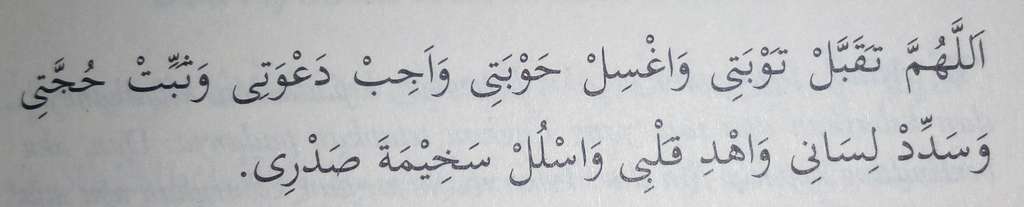 اَللَّهُمَّ تَقَبَّلْ تَوْبَتِى وَاغْسِلْ حَوْبَتِى وَاَجِبْ دَعْوَتِى وَثَبِّتْ حُجَّتِى
وَسَدِّدْ لِسَانِى وَاهْدِ قَلْبِى وَاسْلُلْ سَخِيْمَةَ صَدْرِى.